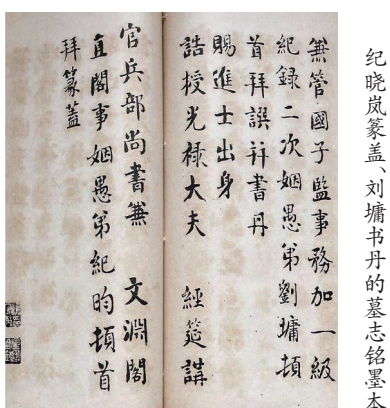 纪晓岚篆盖、刘墉书丹的墓志铭墨本
兼管國子監事務加一級
紀録二次姻愚弟劉墉頓
首拜譔并書丹
賜進士出身
誥授光祿大夫 經筵講
官兵部尚書兼 文淵閣
直閣事姻愚弟紀昀頓首
拜篆蓋